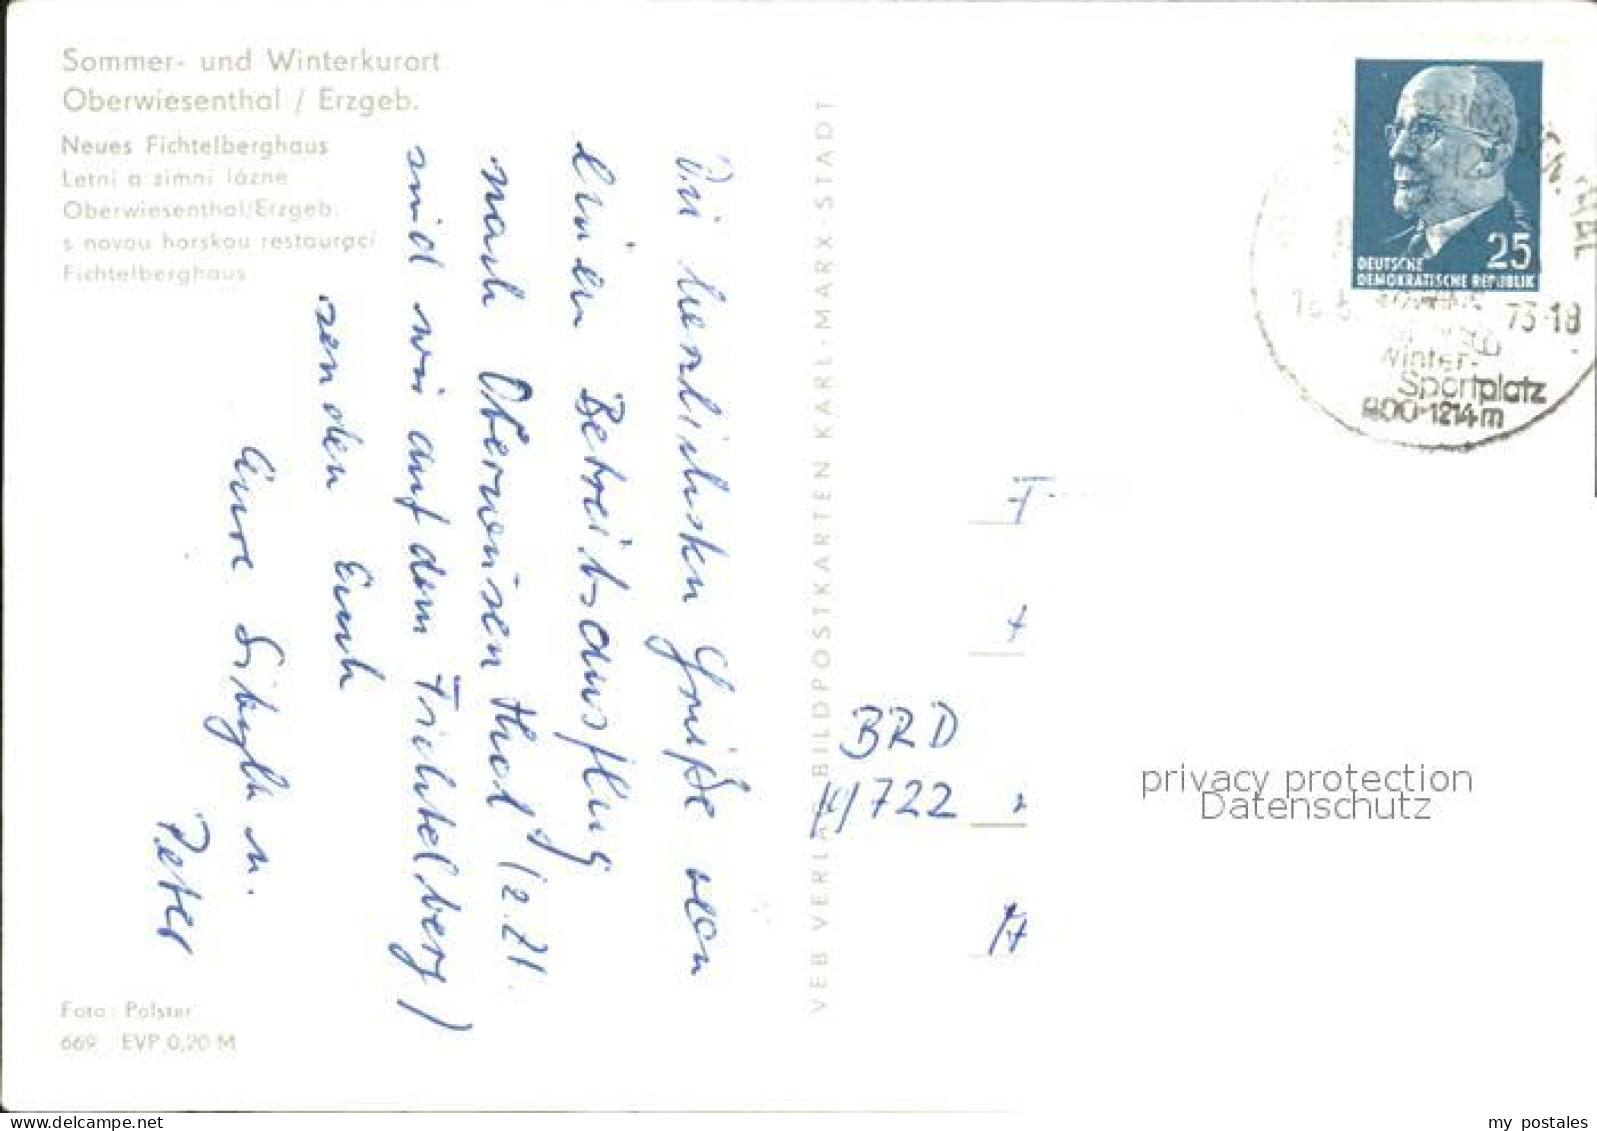 Sommer- und Winterkurort
Oberwiesenthal / Erzgeb.
Neues Fichtelberghaus
Letni a zimni lázně
Oberwiesenthal/Erzgeb.
s novou horskou restaurací
Fichtelberghaus
Die herzlichsten Grüße von
einem Betreibsausflug
nach Oberwiesenthal (z. Zt.
sind wir auf dem Fichtelberg)
senden Euch
Eure Sibylle u.
Peter
Foto: Polster
669 EVP 0,20 M
VEB VERLAG BILDPOSTKARTEN KARL-MARX-STADT
25
DEUTSCHE
DEMOKRATISCHE REPUBLIK
73-18
Winter-
Sportplatz
800-1214m
BRD
722
privacy protection
Datenschutz
my postales